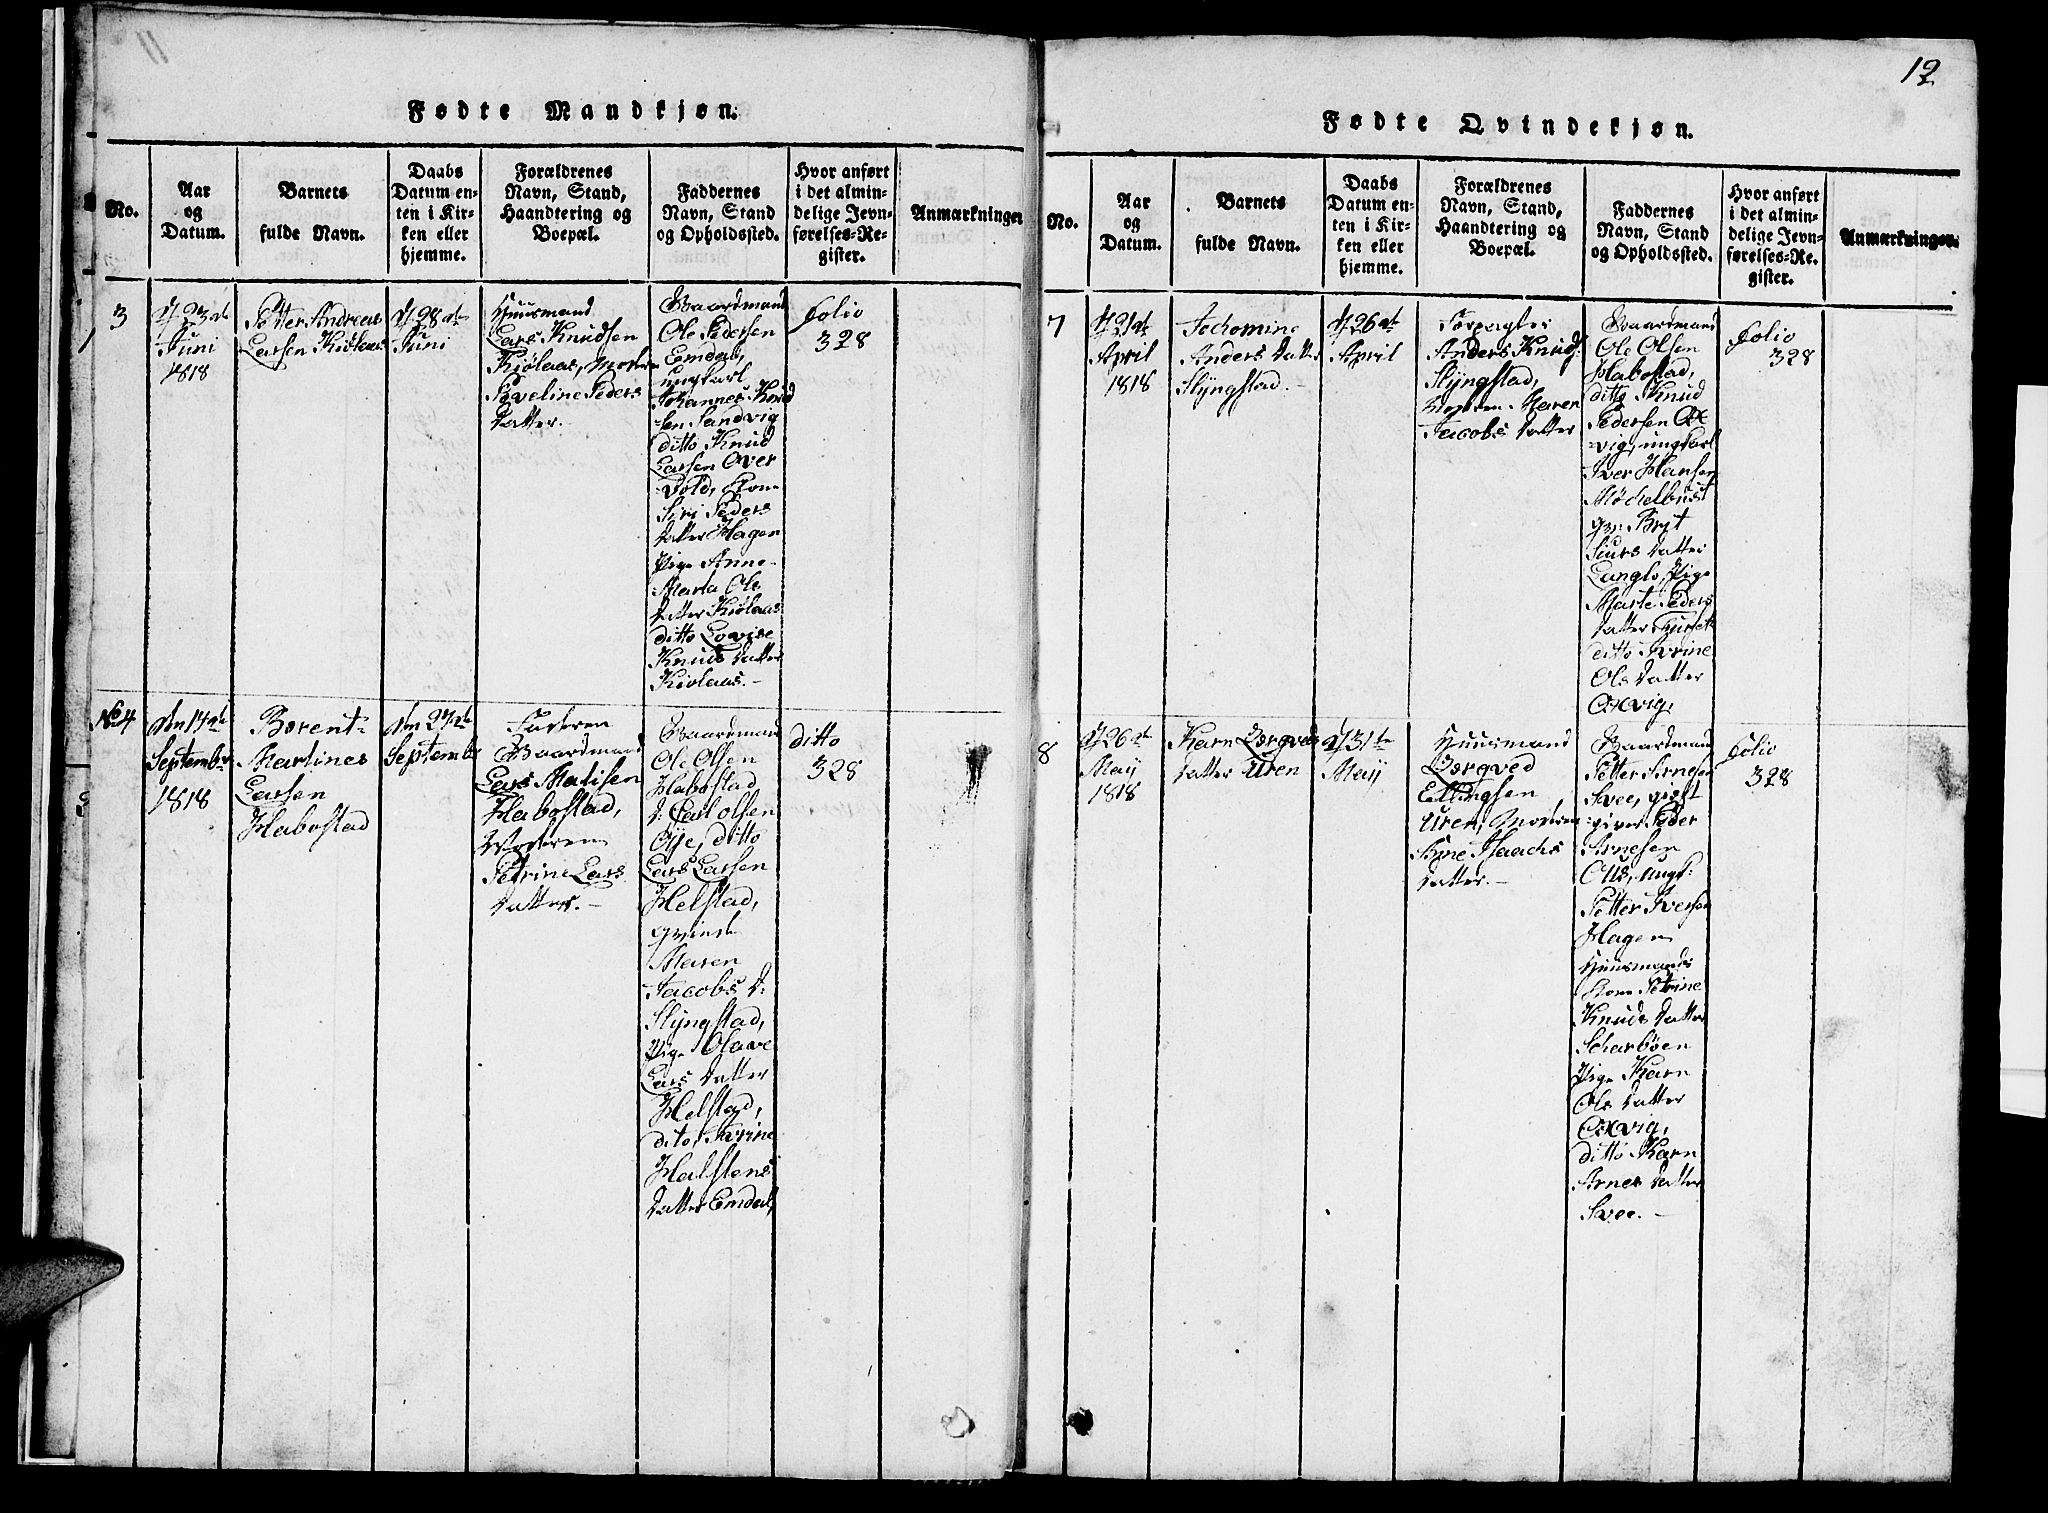 11
Fødte Mandkjøn.
No.
Aar
og
Datum.
Barnets
fulde Navn.
Daabs
Datum en-
ten i Kir-
ken eller
hjemme.
Forældrenes
Navn, Stand,
Haandtering og
Boepæl.
Faddernes
Navn, Stand
og Opholdssted.
Hvor anført
i det almin-
delige Jevn-
førelses-Re-
gister.
Anmærkninger
3
23de
Juni
1818
Petter Andreas
Larsen Kiølaas
28de
Juni
Huusmand
Lars Knudsen
Kiølaas, Moderen
Peders
Datter.
Gaardmand
Ole Pedersen
Emdal,
ungkarl
Johannes
sen Sandvig
ditto Knud
Larsen Over
Vold, Kone
Siri Peders
Datter Hagen
Pige Anne
Marta Ole
Datter Kiølaas
ditto Lovise
Knuds Datter
Kiolaas.-
Folio
328
No 4
den 17de
September
1818
Berent
Martines
Larsen
Habostad
den 27de
Septemb:
Faderen
Gaardmand
Lars Madisen
Habostad,
Moderen
Petrine Lars
Datter.-
Gaardmand
Ole Olsen
Habostad
D: Carl olsen
Øye, ditto
Lars Larsen
Helstad,
Qvinde
Maren
Jacobs D:
Slÿngstad,
Pige Olave
Lars Datter
Helstad,
dito
Halstens
Datter Emdal,
ditto
328
12
Fødte Qvindekjøn.
No.
Aar
og
Datum.
Barnets
fulde Navn.
Daabs
Datum en-
ten i Kir-
ken eller
hjemme.
Forældrenes
Navn, Stand,
Haandtering og
Boepæl.
Faddernes
Navn, Stand
og Opholdssted.
Hvor anført
i det almin-
delige Jevn-
førelses-Re-
gister.
Anmærkninger.
7
21de
April
1818
Jochomine
Anders Datter
Slÿngstad.-
26de
April
Anders Knuds:
Slÿngstad,
Moderen Maren
Jacobs Datter
Gaardmand
Ole Olsen
Habostad,
ditto Knud
Pedersen Ox
vig, ungkarl
Iver Hansen
Møchelbust
qv: Bryt
Siurs Datter
Langlo, Pige
Marte Peders
Datter
ditto
Ols Datter
Oxvig,
Folio
328
8
26de
May
1818
Karn
Datter Uren
31te
May
Huusmand
Ellingsen
Uren, Moderen
Isaachs
Datter.-
Gaardmand
Petter Arnesen
Svee, giest
giver Peder
Arnesen
ungk:
Petter Iversen
Hagen
Huusmands
Kone Petrine
Knuds Datter
Scharbøen
Pige Karn
Ols Datter
Oxvig,
ditto Karn
Arnes Datter
Svee.-
Folio
328